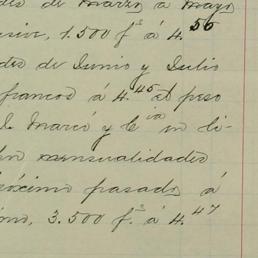 des de Marzo a Mayo
sive, 1.500 f.ˢ á 4.⁵⁶
des de Junio y Julio
francos á 4.⁴⁵ el peso
D. Marcó y C.ⁱᵃ in li-
mensualidades
óximo pasado á
3.500 f.ˢ á 4.⁴⁷